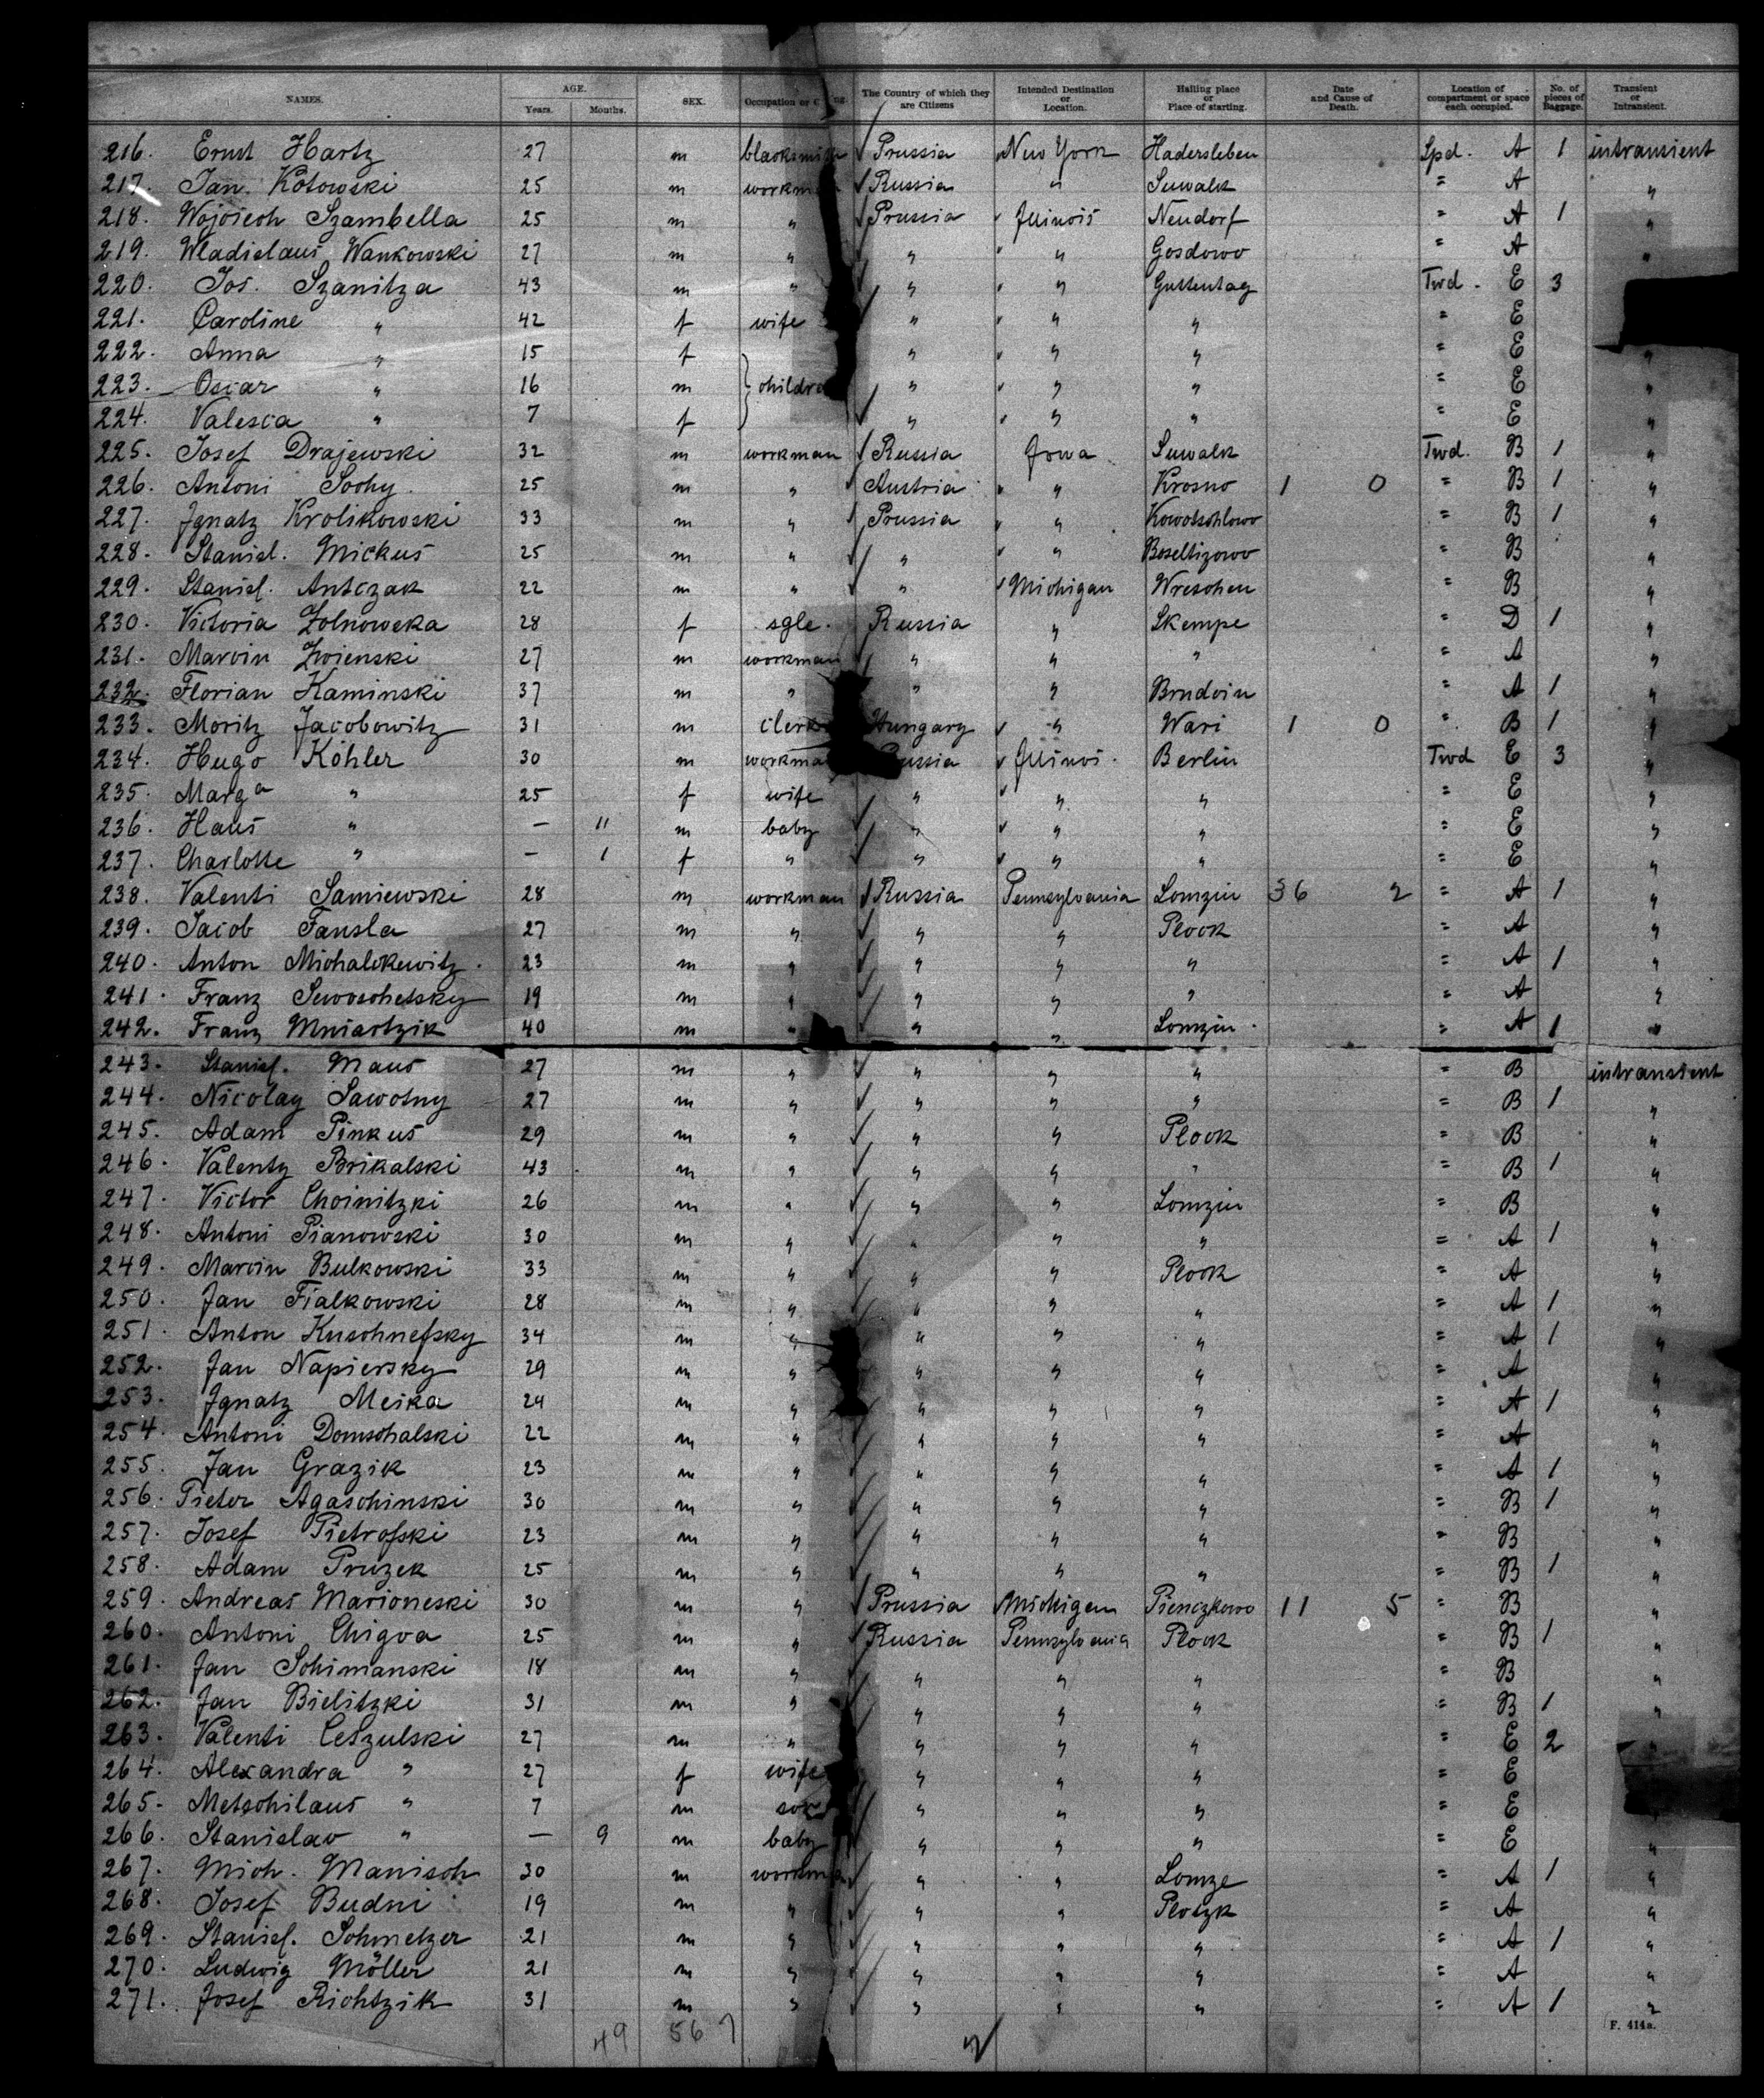 NAMES. AGE. Years. Months. SEX. Occupation or The Country of which they are Citizens Intended Destination or Location. Halling place or Place of starting. Date and Cause of Death. Location of compartment or space each occupied. No. of pieces of Baggage. Transient or Intransient.
216. Ernst Hartz 27 m blacksmith Prussia New York Hadersleben Spd. A 1 intransient
217. Jan Kotowski 25 m workman Russia " Suwalk " A "
218. Wojciech Szambella 25 m " Prussia Illinois Neudorf " A 1 "
219. Wladislaus Wankowski 27 m " " " Gosdowo " A "
220. Jos. Szanitza 43 m " " " Guttentag Twd. E 3
221. Caroline " 42 f wife " " " " E
222. Anna " 15 f " " " " E "
223. Oscar " 16 m children " " " " E "
224. Valesca " 7 f " " " " E "
225. Josef Drajewski 32 m workman Russia Iowa Suwalk Twd. B 1 "
226. Antoni Sochy 25 m " Austria " Krosno 1 0 " B 1 "
227. Ignatz Krolikowski 33 m " Prussia " " B 1 "
228. Stanisl. Mickus 25 m " " " " B "
229. Stanisl. Antczak 22 m " " Michigan Wreschen " B "
230. Victoria Zolnowska 28 f sgle. Russia " Skempe " D 1 "
231. Marcin Zwienski 27 m workman " " " " A "
232. Florian Kaminski 37 m " " " " A 1 "
233. Moritz Jacobowitz 31 m clerk Hungary " Wari 1 0 " B 1 "
234. Hugo Köhler 30 m workman Illinoi. Berlin Twd E 3 "
235. Marga " 25 f wife " " " " E "
236. Hans " — 11 m baby " " " " E "
237. Charlotte " — 1 f " " " " " E "
238. Valenti Samiewski 28 m workman Russia Pennsylvania Lomzin 36 2 " A 1 "
239. Jacob Fansla 27 m " " " Plock " A "
240. Anton Michalckewitz. 23 m " " " " " A 1 "
241. Franz 19 m " " " " " A "
242. Franz Mniartzik 40 m " " " Lomzin. " A 1 "
243. Stanisl. Maus 27 m " " " " " B intransient
244. Nicolay Sawotny 27 m " " " " " B 1 "
245. Adam Pinkus 29 m " " " Plock " B "
246. Valenty Brikalski 43 m " " " " " B 1 "
247. Victor Choinitzki 26 m " " " Lomzin " B "
248. Antoni Pianowski 30 m " " " " " A 1 "
249. Marcin Bulkowski 33 m " " " Plock " A "
250. Jan Fialkowski 28 m " " " " " A 1 "
251. Anton Kuschnefsky 34 m " " " " " A 1 "
252. Jan Napiersky 29 m " " " " " A "
253. Ignatz Meika 24 m " " " " " A 1 "
254. Antoni Domschalski 22 m " " " " " A "
255. Jan Grazik 23 m " " " " " A 1 "
256. Pieter Agaschinski 30 m " " " " " B 1 "
257. Josef Pietrofski 23 m " " " " " B "
258. Adam Pruzek 25 m " " " " " B 1 "
259. Andreas Marioneski 30 m " Prussia Michigan Pienczkowo 11 5 " B "
260. Antoni Chigva 25 m " Russia Pennsylvania Plock " B 1 "
261. Jan Schimanski 18 m " " " " " B "
262. Jan Bielitzki 31 m " " " " " B 1 "
263. Valenti Ceszulski 27 m " " " " " E 2 "
264. Alexandra " 27 f wife " " " " E
265. Metschilaus " 7 m son " " " " E
266. Stanislav " — 9 m baby " " " " E "
267. Mich. Manisch 30 m workman " " Lomze " A 1 "
268. Josef Budni 19 m " " " Plotzk " A "
269. Stanisl. Schmetzer 21 m " " " " " A 1 "
270. Ludwig Möller 21 m " " " " " A "
271. Josef Richtzik 31 m " " " " " A 1 "
49 56 7
F. 414a.